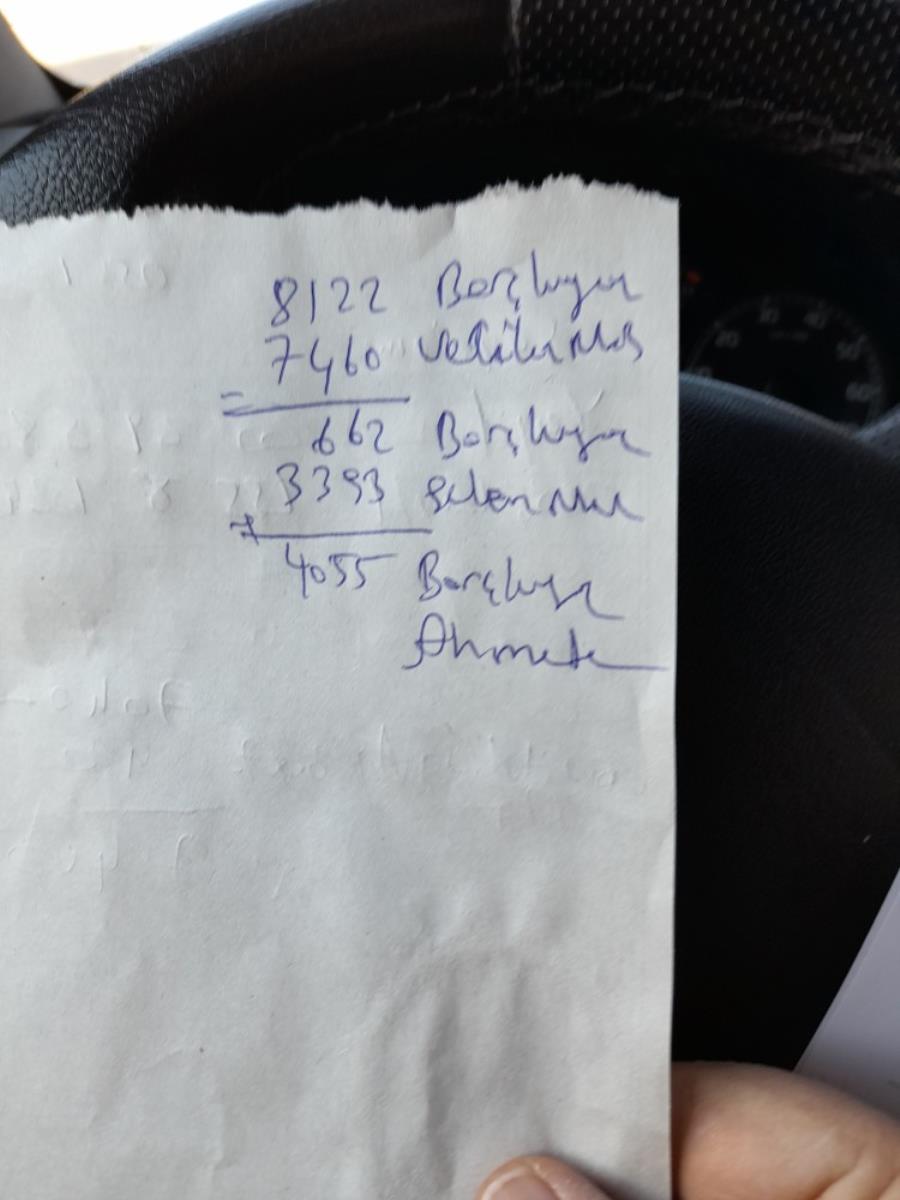 8122 Borçluyuz
7460 Verilen Mal
=
662 Borçluyuz
3393 Gelen Mal
+
4055 Borçluyuz
Ahmete